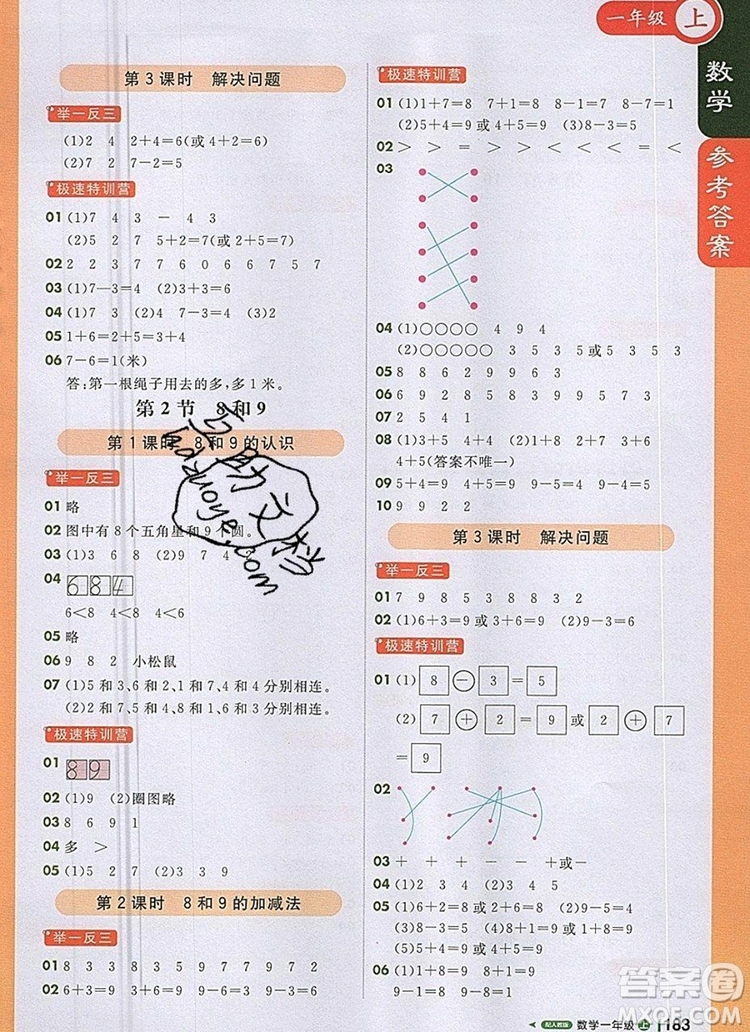 一年级 上
数学
参考答案
第3课时 解决问题
举一反三
(1)2 4 2+4=6(或4+2=6)
(2)7 2 7-2=5
极速特训营
01 (1)7 4 3 － 4 3
(2)5 2 7 5+2=7(或2+5=7)
02 2 2 3 7 7 6 0 6 6 7 5 7
03 (1)7—3=4 (2)7—4=3
04 (1)7 3 (2)4 7
05 1+6=2+5=3+4
06 7-6=1(米)
答:第一根绳子用去的多,多1米。
第2节 8和9
第1课时 8和9的认识
举一反三
01 略
02 图中有8个五角星和9个圆。
03 (1)3 6 8 (2)9 7 4
04 6 8 4
6<8 4<8 4<6
05 略
06 9 8 2 小松鼠
07 (1)5和3、6和2、1和7、4和4分别相连。
(2)2和7、5和4、8和1、6和3分别相连。
极速特训营
01 8 9
02 (1)9 (2)圈图略
03 8 6 9 1
04 多 >
05 (1)5 2 7 (2)3 3 9
第2课时 8和9的加减法
举一反三
01 8 3 3 8 5 5 9 7 9 7 2 2
02 6+3=9 3+6=9 9-3=6 9-6=3
极速特训营
01 (1)1+7=8 7+1=8 8-1=7 8-7=1
(2)5+4=9或4+5=9 (3)8-5=3
02 > > > < < < = <
03
04 (1)○○○○ 4 9 4
(2)○○○○○ 3 5 3 5或5 3 5 3
05 8 8 6 2 9 9 6 3
06 9 2 8 5 8 3 9 5 3 8 7 6
07 2 5 4 1
08 (1)4+4 (2)2+7 3+6 1+8
4+5(答案不唯一)
09 5+4=9 4+5=9 9-5=4 9-4=5
10 9 2 4 5
第3课时 解决问题
举一反三
01 7 9 8 5 3 8 8 3 2
02 (1)6+3=9或3+6=9 (2)8-2=6
极速特训营
01 (1) 8 － 3 = 5
(2) 7 + 2 = 9 或 2 + 7
= 9
02
03 + + － － － +或－
04 (1)3+5=8或5+3=8 (2)9-3=6
05 (1)6+2=8或2+6=8 (2)9-5=4
(3)4+5=9或5+4=9 (4)9-4=5
(5)5+4=9或4+5=9
06 (1)1+8=9 8+1=9
9-1=8 9-8=1
答案圈
MXQE.COM
配人教版 数学一年级 上 P183